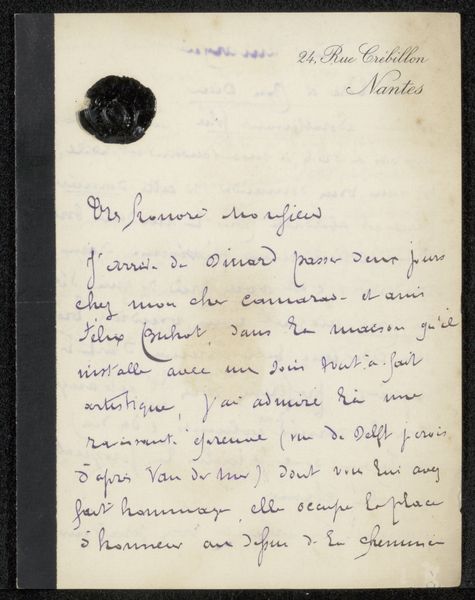 24, Rue Crébillon
Nantes
Très honoré Monsieur
J'arrive de Dinard passer deux jours
chez mon cher camarade et ami
Félix Buhot, dans la maison qu'il
installe avec un soin tout à fait
artistique, j'ai admiré là une
ravissante épreuve (vue de Delft je crois
d'après Van der Meer) dont vous lui avez
fait hommage, elle occupe la place
d'honneur au dessus de la cheminée